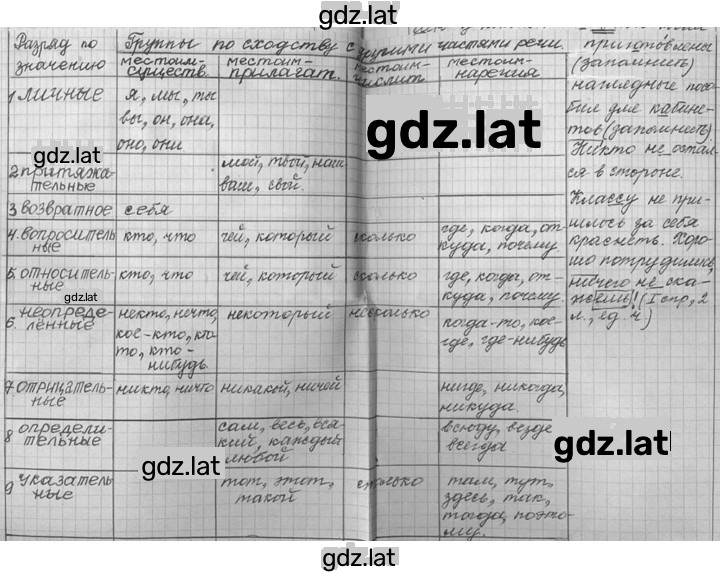 gdz.lat
Разряд по значению
Группы по сходству с другими частями речи.
местоим-существ.
местоим-прилагат.
местоим-числит.
местоим-наречия
1 личные
я, мы, ты
вы, он, она,
оно, они
gdz.lat
2 притяжа-
тельные
мой, твой, наш
ваш, свой.
3 возвратное
себя
4. вопроситель-
ные
кто, что
чей, который
сколько
где, когда, от-
куда, почему
5. относитель-
ные
gdz.lat
кто, что
чей, который
сколько
где, когда, от-
куда, почему
6. неопреде-
лённые
некто, нечто,
кое-кто, кто-
то, кто-
нибудь
некоторый
несколько
когда-то, кое-
где, где-нибудь
7 отрицатель-
ные
никто, ничто
никакой, ничей
нигде, никогда,
никуда.
8 определи-
тельные
сам, весь, вся-
кий, каждый
любой
всюду, везде
всегда
gdz.lat
9 указатель-
ные
gdz.lat
тот, этот,
такой
столько
там, тут,
здесь, так,
тогда, поэто-
му.
приготовлены
(запомнить)
наглядные посо-
бия для кабине-
тов (запомнить)
Никто не остал-
ся в стороне.
Классу не при-
шлось за себя
краснеть. Хоро-
шо потрудились,
ничего не ска-
жешь! (I спр., 2
л., ед. ч.)
gdz.lat